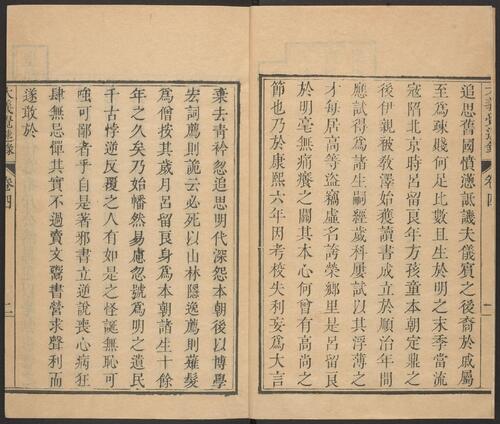 追思舊國憤懣詆譏夫儀賓之後裔於戚屬
至爲疎賤何足比數且生於明之末季當流
寇陷北京時呂留良年方孩童本朝定鼎之
後伊親被敎澤始獲讀書成立於順治年間
應試得爲諸生嗣經歲科屢試以其浮薄之
才每居高等盜竊虛名誇榮鄉里是呂留良
於明毫無痛癢之關其本心何曾有高尚之
節也乃於康熙六年因考校失利妄爲大言
大義覺迷錄 卷四
棄去靑衿忽追思明代深怨本朝後以博學
宏詞薦則詭云必死以山林隱逸薦則薙髮
爲僧按其歲月呂留良身爲本朝諸生十餘
年之久矣乃始幡然易慮忽號爲明之遺民
千古悖逆反覆之人有如是之怪誕無恥可
嗤可鄙者乎自是著邪書立逆說喪心病狂
肆無忌憚其實不過賣文鬻書營求聲利而
遂敢於
大義覺迷錄 卷四 二